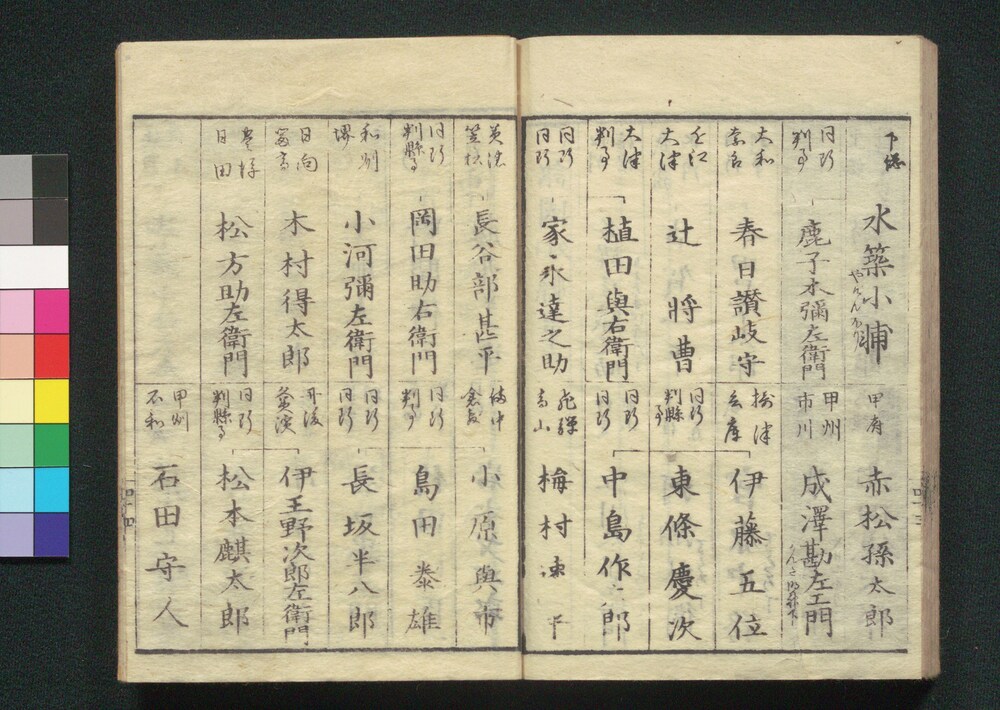 下総
水築小補
鹿子木彌左衛門
判事
大和
奈良
春日讃岐守
近江
大津
辻将曹
大津
判事
植田與右衛門
家永達之助
甲府
赤松孫太郎
甲州
市川
成澤勘左エ門
摂津
兵庫
伊藤五位
判縣事
東條慶次
中島作
郎
飛騨
高山
梅村速
美濃
笠松
長谷部甚平
判縣事
岡田助右衛門
和州
堺
小河彌左衛門
日向
富高
木村得太郎
豊
日田
松方助左衛門
備中
倉敷
小原與市
判事
島田泰雄
長坂半八郎
丹後
伊王野次郎左衛門
判縣事
松本麒太郎
甲州
石和
石田守人